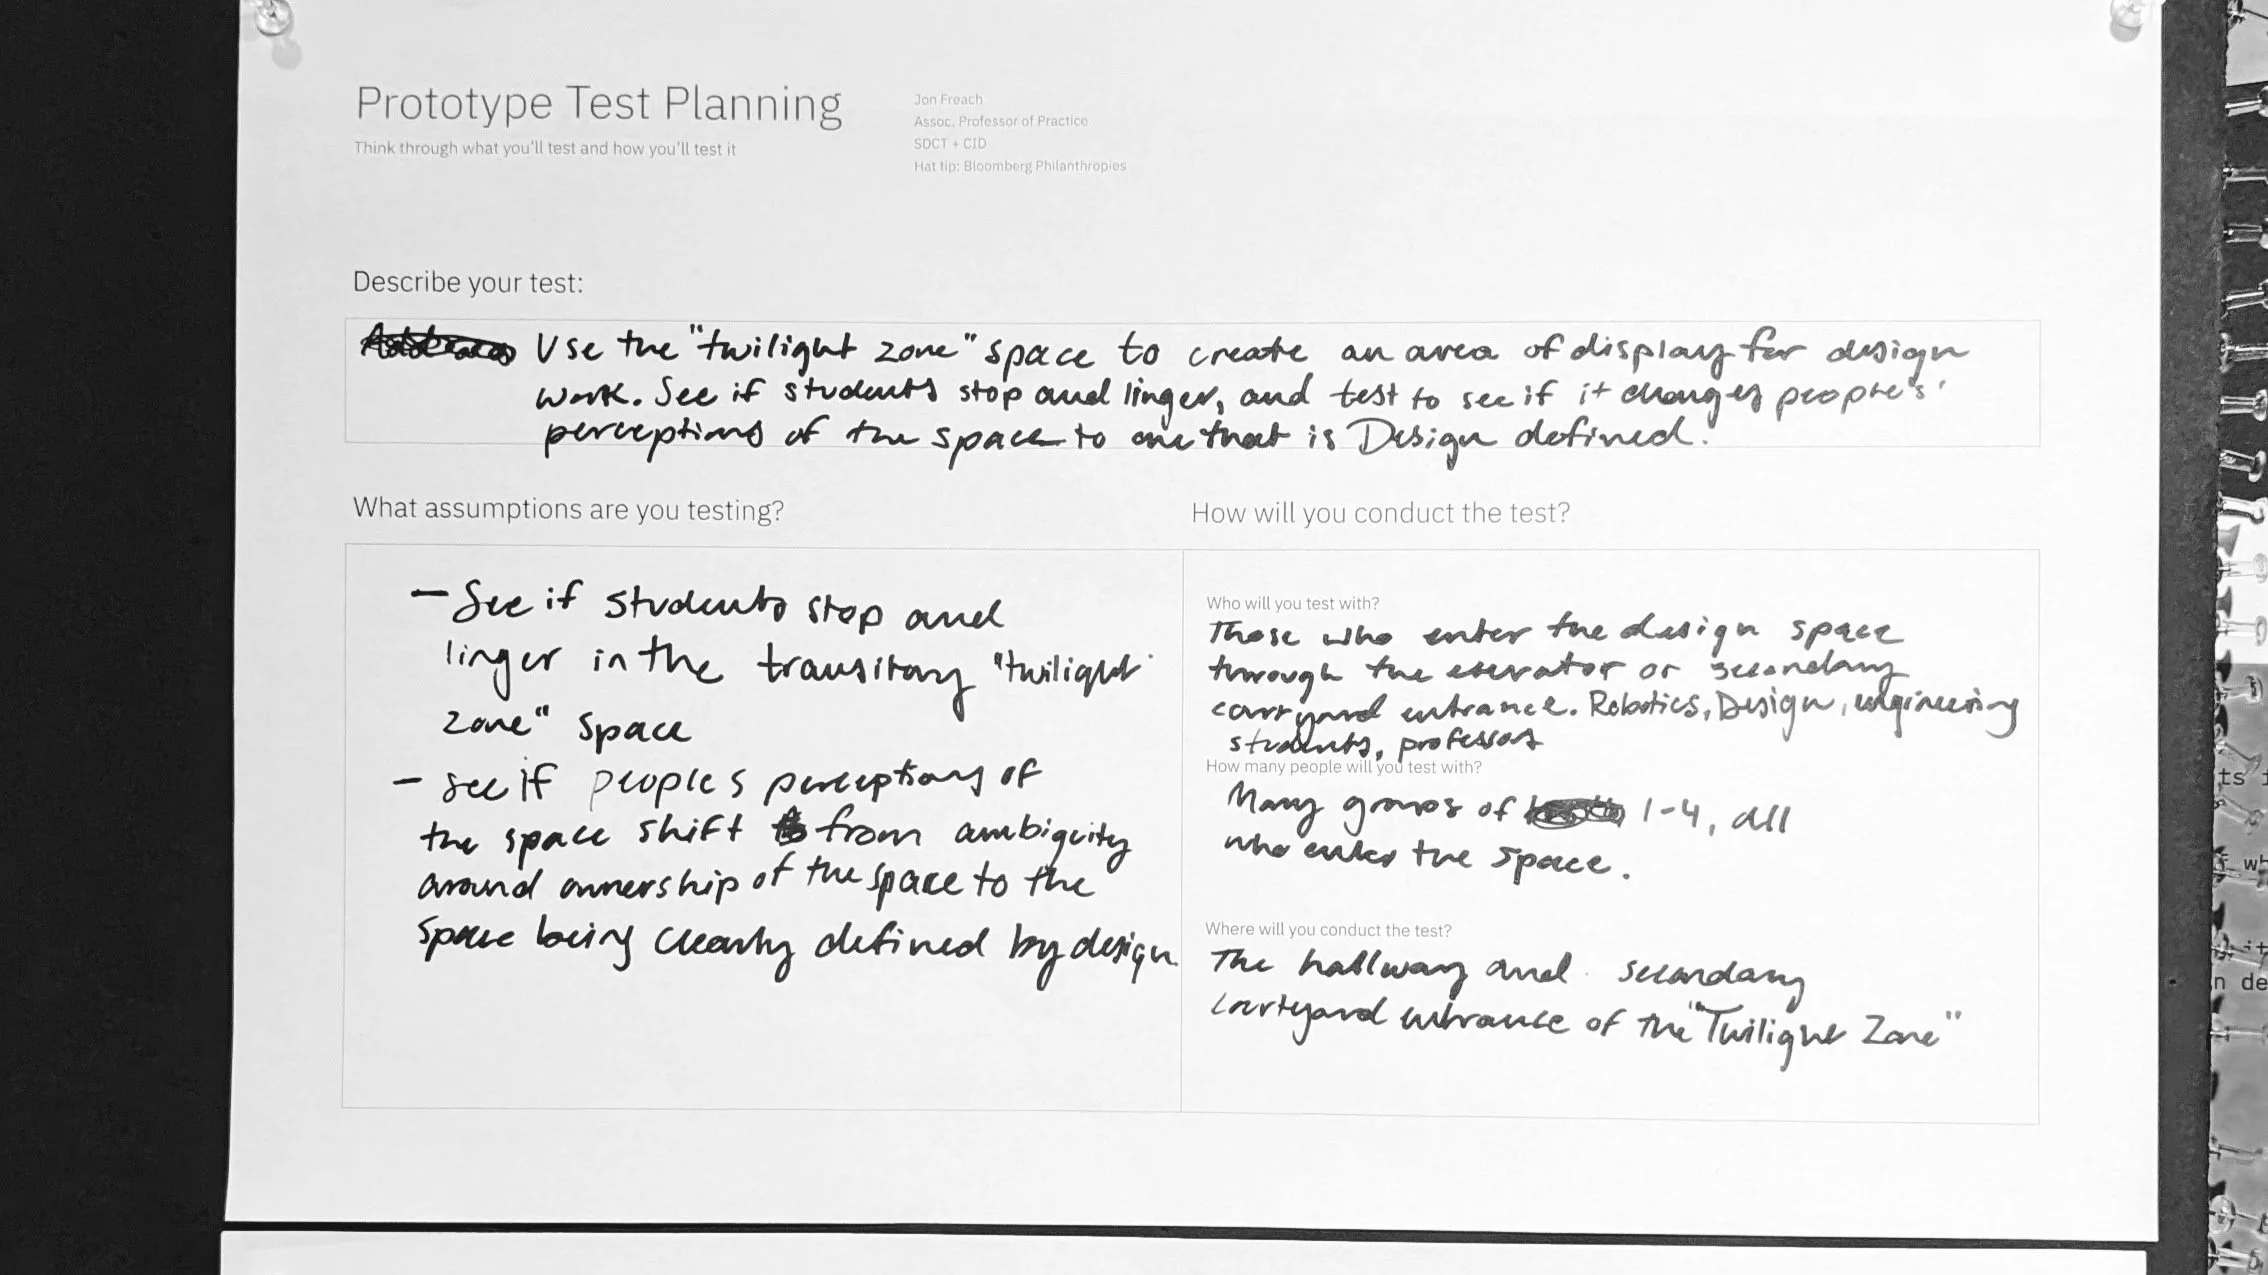 Prototype Test Planning
Think through what you'll test and how you'll test it
Jon Freach
Assoc. Professor of Practice
SDCT + CID
Hat tip: Bloomberg Philanthropies
Describe your test:
Use the "twilight zone" space to create an area of display for design
work. See if students stop and linger, and test to see if it changes people's
perceptions of the space to one that is Design defined.
What assumptions are you testing?
- See if students stop and
linger in the transitory "twilight
zone" space
- see if people s perceptions of
the space shift from ambiguity
around ownership of the space to the
space being clearly defined by design.
How will you conduct the test?
Who will you test with?
Those who enter the design space
through the elevator or secondary
courtyard entrance. Robotics, Design, engineering
students, professors
How many people will you test with?
Many groups of 1-4, all
who enter the space.
Where will you conduct the test?
The hallway and secondary
courtyard entrance of the "Twilight Zone"
ts
n de